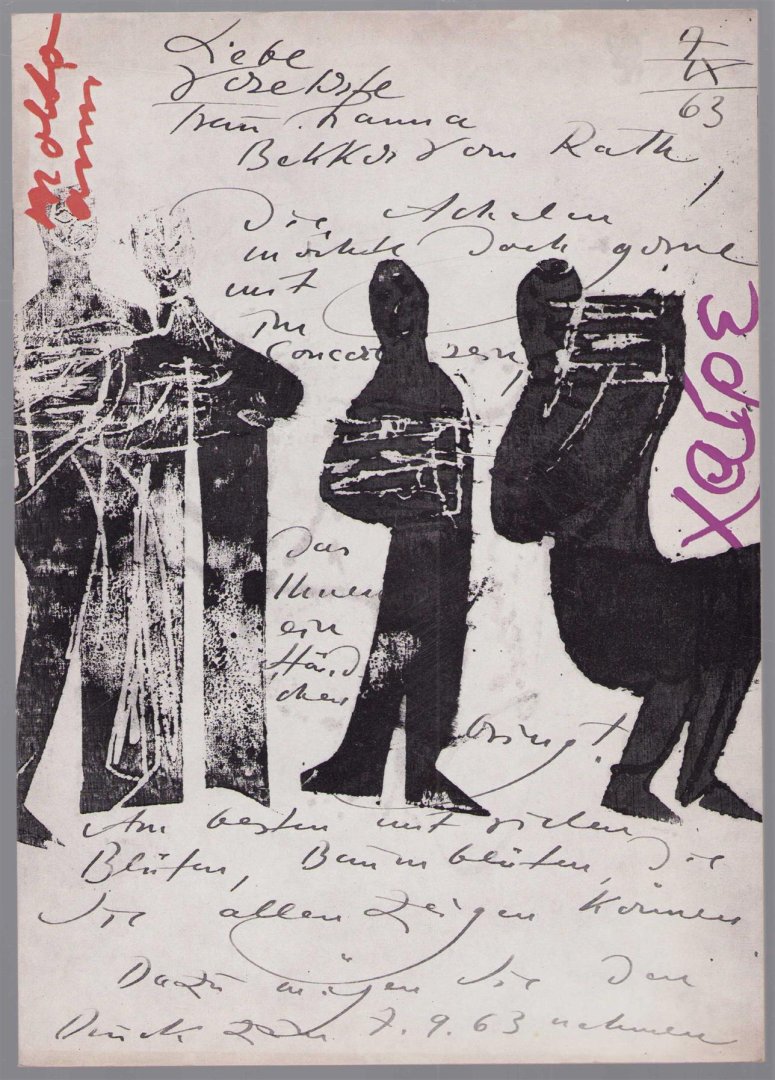 Liebe
verehrte
Frau Hanna
Bekker vom Rath,
7
IX
63
Die Achalm
möchte doch gerne
mit
im
Concert sein,
χαῖρε
Das
Ihnen
ein
Händ
chen
bringt!
Am besten mit vielen
Blüten, Baumblüten, die
Sie allen zeigen können
Dazu mögen Sie den
Druck zum 7. 9. 63 nehmen